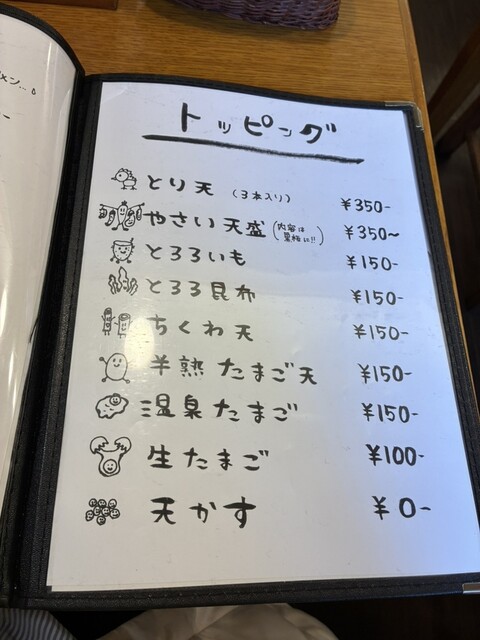 トッピング
とり天 (3本入り) ¥350-
やさい天盛 (内容は黒板に!!) ¥350~
とろろいも ¥150-
とろろ昆布 ¥150-
ちくわ天 ¥150-
半熟たまご天 ¥150-
温泉たまご ¥150-
生たまご ¥100-
天かす ¥0-